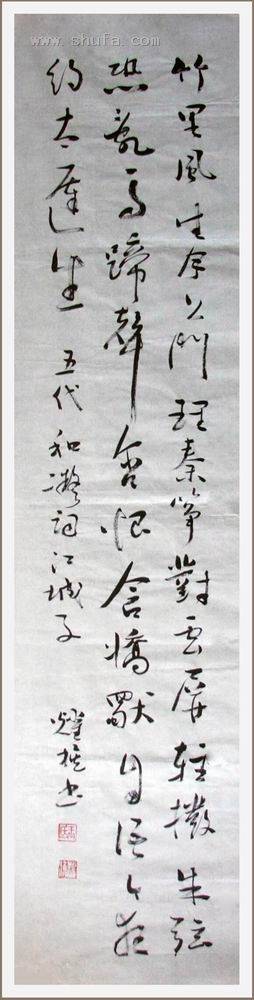 www.shufa.com
竹里風生月上門理秦箏對雲屏輕撥朱弦
恐亂馬蹄聲含恨含嬌獨自語今夜
約太遲生 五代和凝詞江城子 書